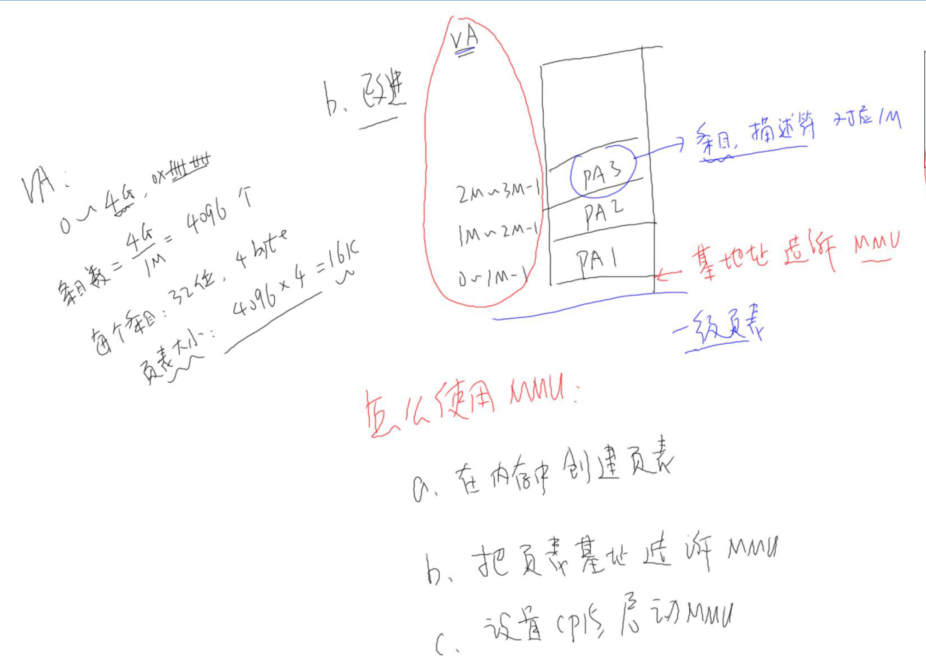 VA
b、改进
条目, 描述符 对应1M
VA:
0~4G, 0x
2M~3M-1 PA3
1M~2M-1 PA2
0~1M-1 PA1
条目数=4G/1M=4096个
每个条目:32位, 4byte
页表大小: 4096×4=16K
基地址 告诉 MMU
一级页表
怎么使用MMU:
a、在内存中创建页表
b、把页表基址告诉MMU
c、设置CP15, 启动MMU